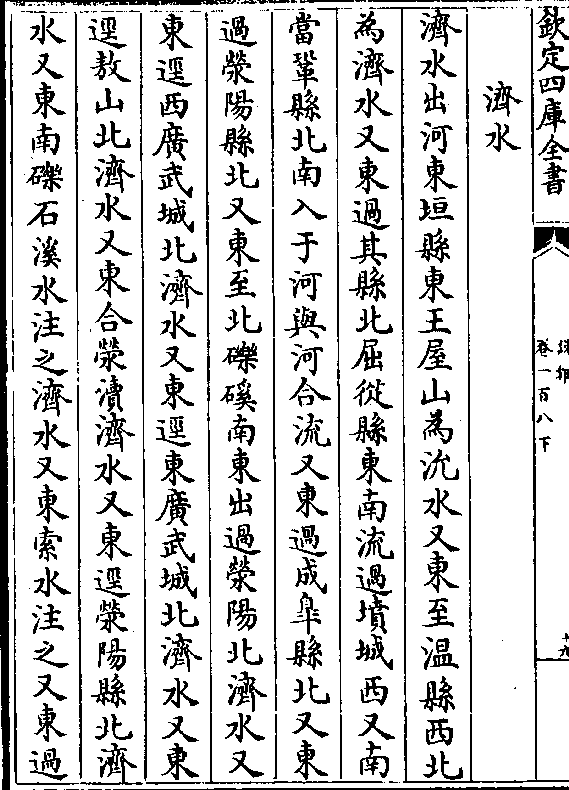 欽定四庫全書
卷一百八下
濟水
濟水出河東垣縣東王屋山為沇水又東至温縣西北
為濟水又東過其縣北屈從縣東南流過墳城西又南
當鞏縣北南入于河與河合流又東過成臯縣北又東
過滎陽縣北又東至北礫磎南東出過滎陽北濟水又
東逕西廣武城北濟水又東逕東廣武城北濟水又東
逕敖山北濟水又東合滎瀆濟水又東逕滎陽縣北濟
水又東南礫石溪水注之濟水又東索水注之又東過